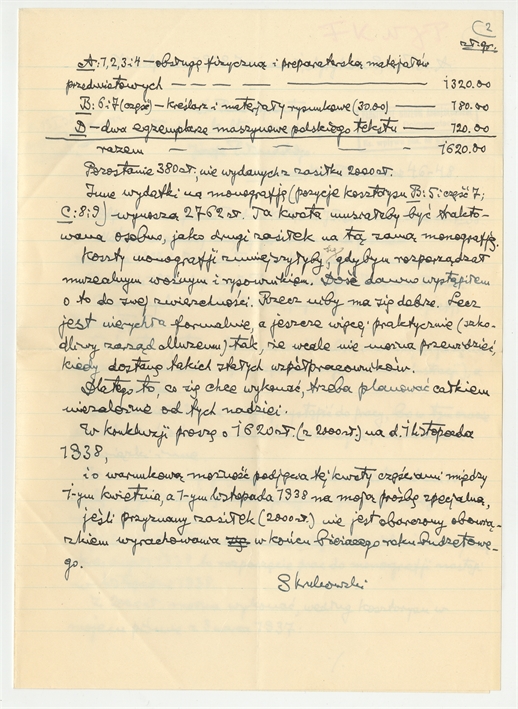 C2
zł.gr.
A: 1, 2, 3 i 4 — obsługę fizyczną i preparatorską materjałów
przedmiotowych — — — — — 1320.00
B: 6 i 7 (część) — kreślarz i materjały rysunkowe (30.00) — 180.00
D — dwa egzemplarze maszynowe polskiego tekstu — 120.00
razem — — — — — 1620.00
Pozostanie 380 zł., nie wydanych z zasiłku 2000 zł.
Inne wydatki na monografję (pozycje kosztorysu B: 5 i część 7;
C: 8 i 9) wynoszą 2762 zł. Ta kwota musiałaby być trakto-
wana osobno, jako drugi zasiłek na tą samą monografję.
Koszty monografji zmniejszyłyby się, gdybym rozporządzał
muzealnym woźnym i rysownikiem. Dość dawno wystąpiłem
o to do swej zwierzchności. Rzecz niby ma się dobrze. Lecz
jest nierychła formalnie, a jeszcze więcej praktycznie (szko-
dliwy zarząd Muzeum) tak, że wcale nie można przewidzieć,
kiedy dostanę takich stałych współpracowników.
Dlatego to, co się chce wykonać, trzeba planować całkiem
niezależnie od tych nadziei.
W konkluzji proszę o 1620 zł. (z 2000 zł.) na d. 1 listopada
1938,
i o warunkową możność podjęcia tej kwoty częściami między
1-ym kwietnia, a 1-ym listopada 1938 na moją prośbę specjalną,
jeśli przyznany zasiłek (2000 zł.) nie jest obarczony obowią-
zkiem wyrachowania w końcu bieżącego roku budżetowe-
go.
S Krukowski